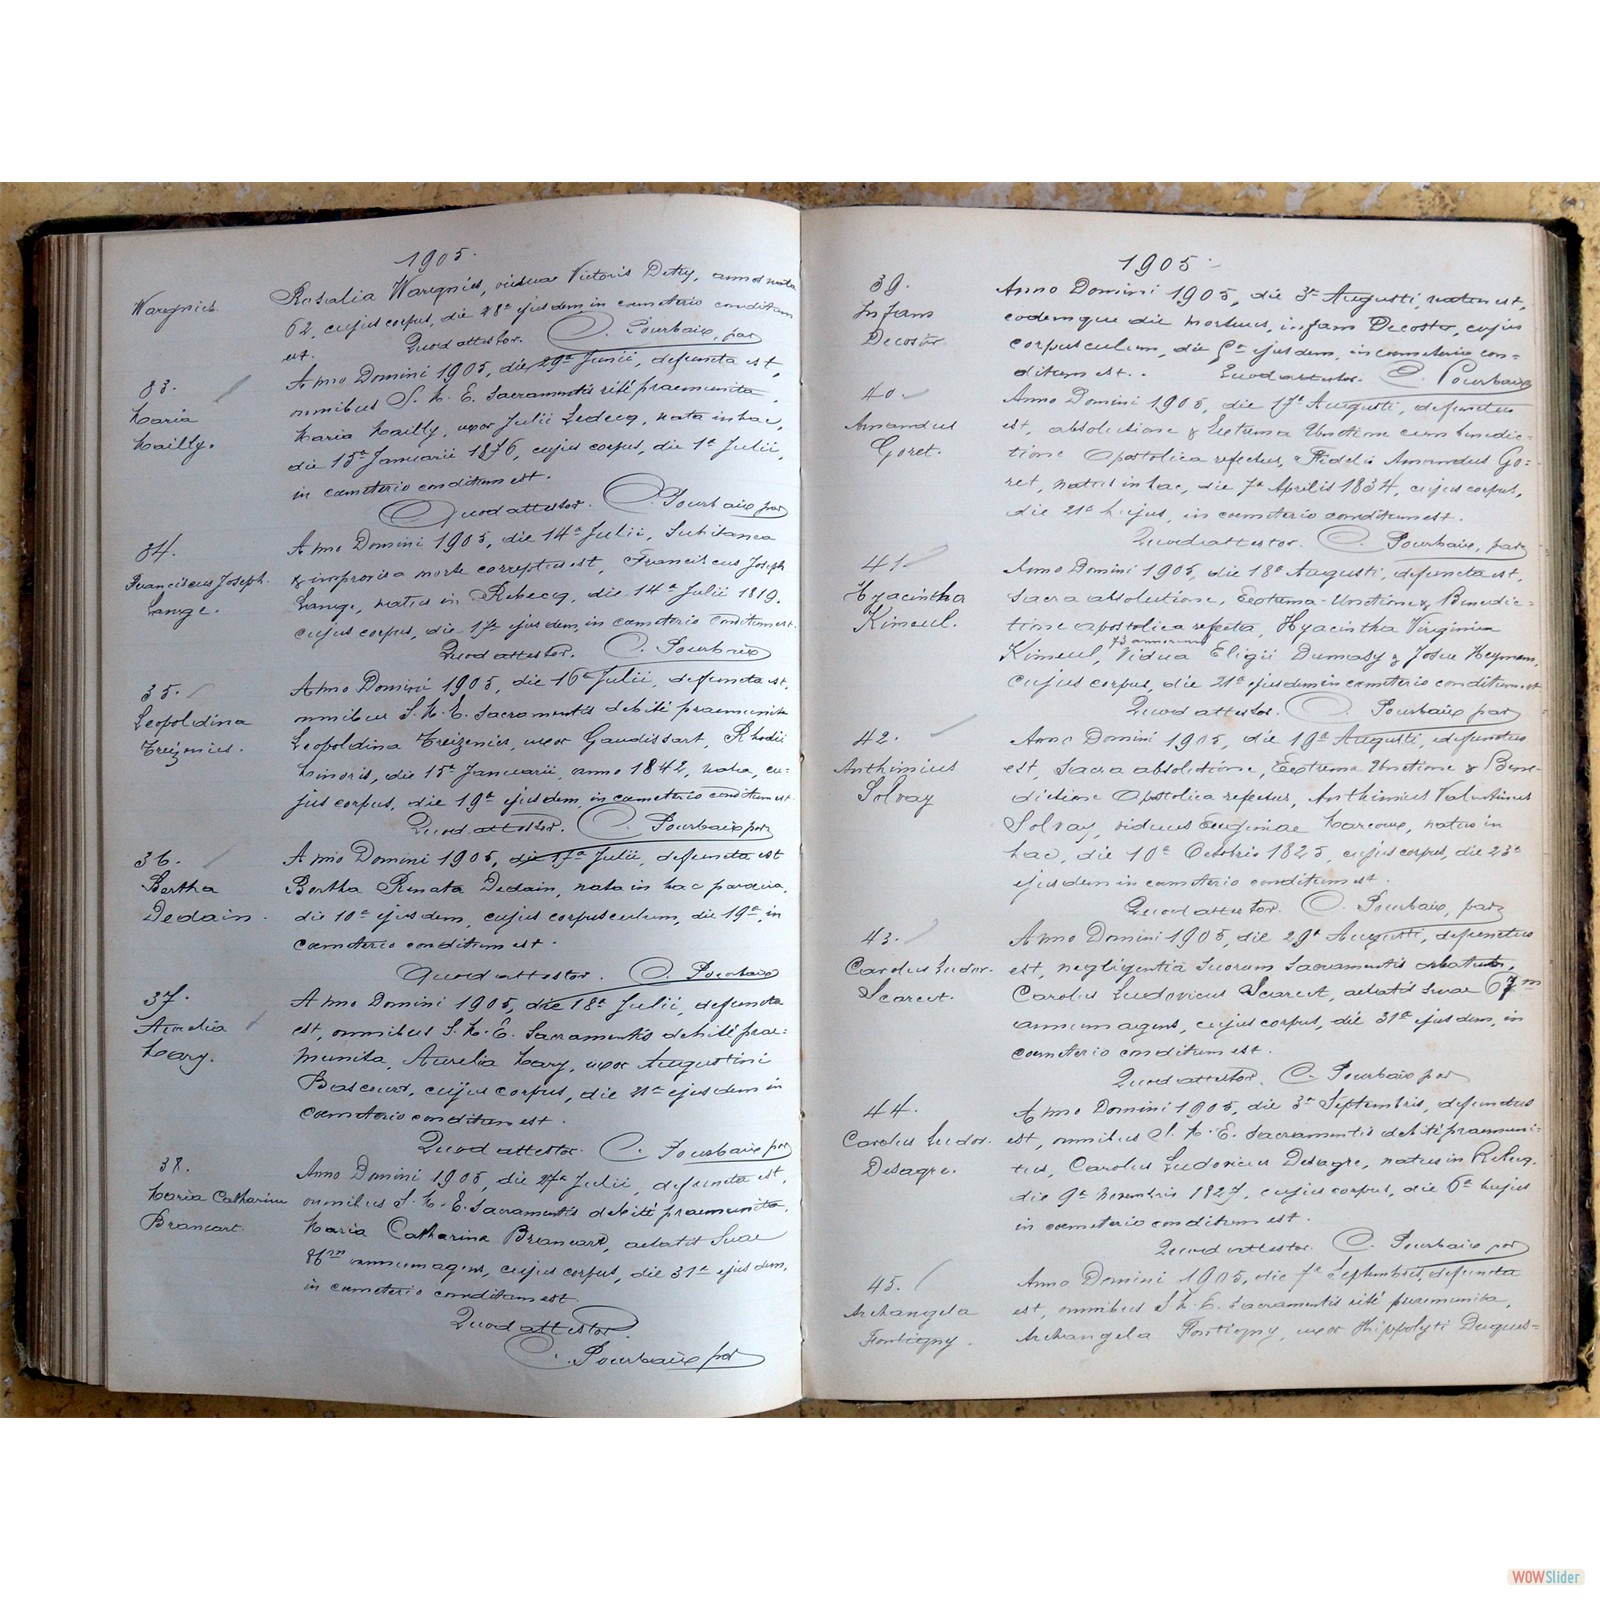 1905.
Waregnies.
Rosalia Waregnies, vidua Victoris Detry, annos nata
62, cujus corpus, die 28ª ejusdem, in cæmeterio conditum
est. Quod attestor. C. Pourbaix, par
33.
Maria
Mailly.
Anno Domini 1905, die 29ª Junii, defuncta est,
omnibus S. M. E. Sacramentis rité praemunita,
Maria Mailly, uxor Julii Ledecq, nata in hac,
die 15ª Januarii 1876, cujus corpus, die 1ª Julii,
in cæmeterio conditum est.
Quod attestor. C. Pourbaix par
34.
Franciscus Joseph.
Lange.
Anno Domini 1905, die 14ª Julii, Subitanea
& improvisa morte correptus est, Franciscus Joseph
Lange, natus in Rebecq, die 14ª Julii 1819,
cujus corpus, die 17ª ejusdem, in cæmeterio conditum est.
Quod attestor. C. Pourbaix
35.
Leopoldina
Treizenies.
Anno Domini 1905, die 16ª Julii, defuncta est,
omnibus S. M. E. Sacramentis debité praemunita
Leopoldina Treizenies, uxor Gaudissart, Rhodii
Minoris, die 15ª Januarii, anno 1842, nata, cu=
jus corpus, die 19ª ejusdem, in cæmeterio conditum est.
Quod attestor. C. Pourbaix par
36.
Bertha
Dedain.
Anno Domini 1905, die 17ª Julii, defuncta est
Bertha Renata Dedain, nata in hac parœcia,
die 10ª ejusdem, cujus corpusculum, die 19ª, in
cœmeterio conditum est.
Quod attestor. C. Pourbaix
37.
Aurelia
Mary.
Anno Domini 1905, die 18ª Julii, defuncta
est, omnibus S. M. E. Sacramentis debité prae=
munita, Aurelia Mary, uxor Augustini
Bascourt, cujus corpus, die 21ª ejusdem in
cœmeterio conditum est.
Quod attestor. C. Pourbaix par
38.
Maria Catharina
Brancart.
Anno Domini 1905, die 27ª Julii, defuncta est,
omnibus S. M. E. Sacramentis debité praemunita,
Maria Catharina Brancart, aetatis Suae
86m annum agens, cujus corpus, die 31ª ejusdem,
in cæmeterio conditum est.
Quod attestor.
C. Pourbaix par
1905
39.
Infans
Decoster
Anno Domini 1905, die 3ª Augusti, natus est,
eodemque die mortuus, infans Decoster, cujus
corpusculum, die 5ª ejusdem, in cœmeterio con=
ditum est. Quod attestor. C. Pourbaix
40.
Amandus
Goret.
Anno Domini 1905, die 17ª Augusti, defunctus
est, absolutione & Extrema Unctione cum benedic=
tione Apostolica refectus, Fidelis Amandus Go=
ret, natus in hac, die 7ª Aprilis 1834, cujus corpus,
die 21ª hujus, in cœmeterio conditum est.
Quod attestor. C. Pourbaix, par
41.
Hyacintha
Kimeul.
Anno Domini 1905, die 18ª Augusti, defuncta est,
Sacra absolutione, Extrema-Unctione & Benedic=
tione apostolica refecta, Hyacintha Virginia
73 annorum
Kimeul, Vidua Eligii Dumasy & Josue Heymans,
cujus corpus, die 21ª ejusdem in cæmeterio conditum est
Quod attestor. C. Pourbaix par
42.
Anthimius
Solvay
Anno Domini 1905, die 19ª Augusti, defunctus
est, Sacra absolutione, Extrema Unctione & Bene=
dictione Apostolica refectus, Anthimius Valentinus
Solvay, viduus Eugeniae Marcoux, natus in
hac, die 10ª Octobris 1825, cujus corpus, die 23ª
ejusdem in cæmeterio conditum est.
Quod attestor. C. Pourbaix, par
43.
Carolus Ludov.
Scarcut.
Anno Domini 1905, die 29ª Augusti, defunctus
est, negligentia Suorum Sacramentis orbatus,
Carolus Ludovicus Scarcut, aetatis Suae 67m
annum agens, cujus corpus, die 31ª ejusdem, in
cœmeterio conditum est.
Quod attestor. C. Pourbaix par
44.
Carolus Ludov.
Desagre.
Anno Domini 1905, die 3ª Septembris, defunctus
est, omnibus S. M. E. Sacramentis debité praemuni=
tus, Carolus Ludovicus Desagre, natus in Rebecq,
die 9ª Novembris 1827, cujus corpus, die 6ª hujus
in cœmeterio conditum est.
Quod attestor. C. Pourbaix par
45.
Archangela
Fontigny.
Anno Domini 1905, die 7ª Septembris, defuncta
est, omnibus S. M. E. Sacramentis rité praemunita,
Archangela Fontigny, uxor Hippolyti Duques=
WOWSlider